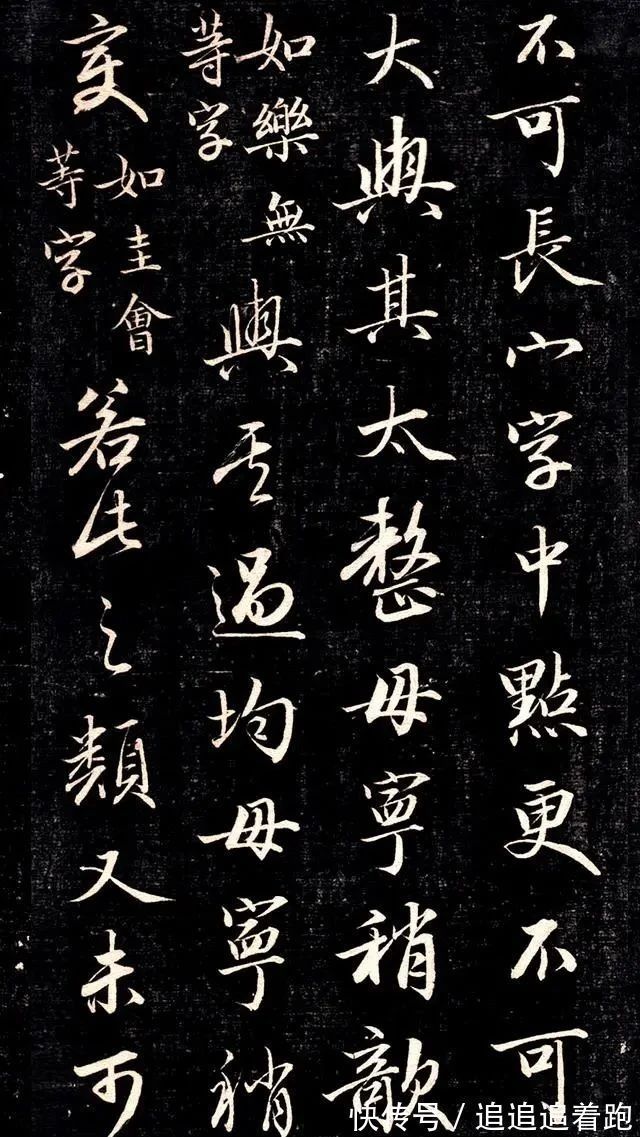 不可長宀字中點更不可
大與其太整毋寧稍欹
如樂無
等字
與其過均毋寧稍
变
如圭會
等字
若此之類又未可
快传号/追追追着跑